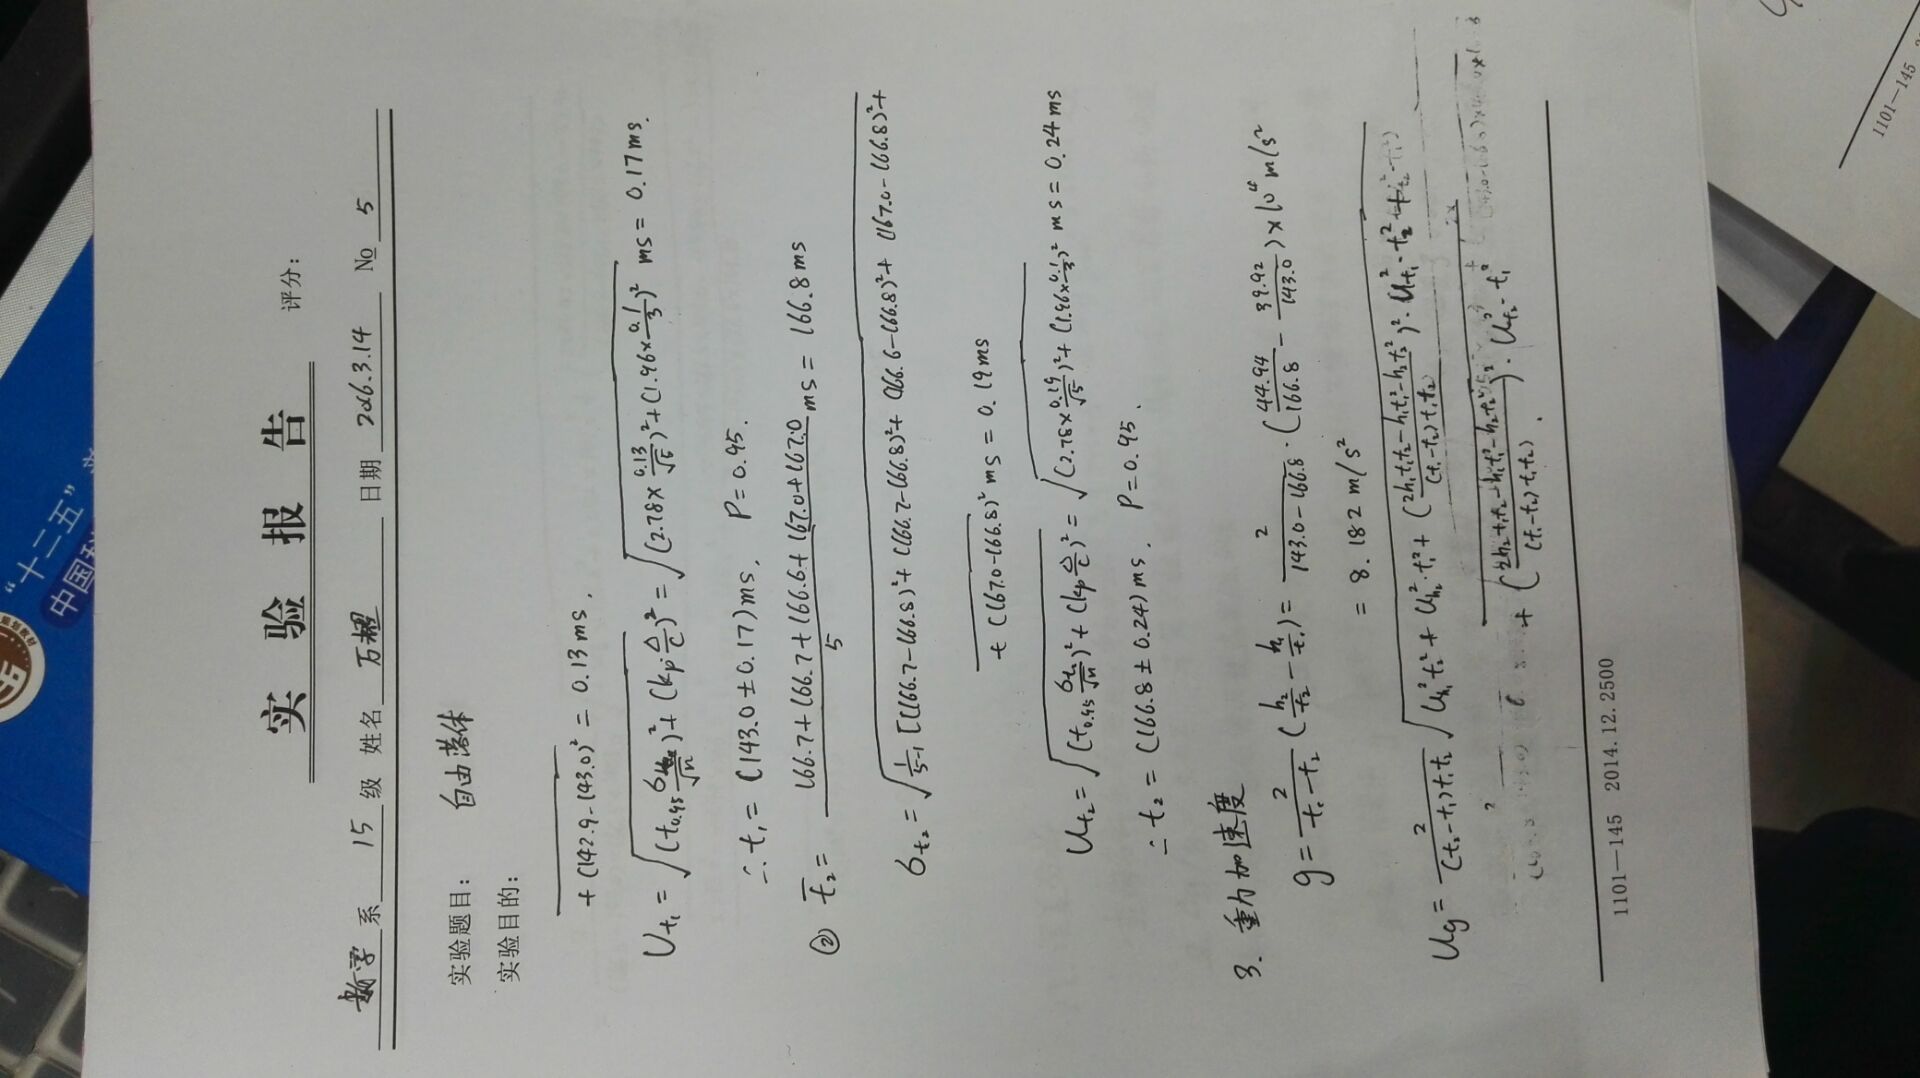 实 验 报 告
评分：
数学 系 15 级 姓名 万 日期 2016.3.14 No 5
实验题目： 自由落体
实验目的：
+ (142.9-143.0)² = 0.13ms.
U_t₁ = √((t₀.₉₅ σ/√n)² + (k_p Δ/C)²) = √((2.78×0.13/√5)²+(1.96×0.1/3)²) ms = 0.17ms.
∴ t₁ = (143.0±0.17)ms, P=0.95.
② t̄₂ = (166.7+166.7+166.6+167.0+167.0)/5 ms = 166.8ms
σ_t₂ = √(1/(5-1) [(166.7-166.8)²+(166.7-166.8)²+(166.6-166.8)²+(167.0-166.8)²+
+(167.0-166.8)² ms = 0.19ms
U_t₂ = √((t₀.₉₅ σ_t₂/√n)²+(k_p Δ/C)²) = √((2.78×0.19/√5)²+(1.96×0.1/3)²) ms = 0.24ms
∴ t₂ = (166.8±0.24)ms, P=0.95.
3. 重力加速度
g = 2/(t₁-t₂) (h₂/t₂ - h₁/t₁) = 2/(143.0-166.8) · (44.94/166.8 - 39.92/143.0)×10⁴ m/s²
= 8.182 m/s²
U_g = 2/((t₂-t₁)t₁t₂) √(U_h₁² t₂² + U_h₂² · t₁² + ((2h₁t₁t₂-h₁t₂²-h₂t₁²)/((t₁-t₂)t₁t₂))² · U_t₁² · t₂²
+ ((2h₂t₁t₂-h₁t₂²-h₂t₁²)/((t₁-t₂)t₁t₂))² · U_t₂² · t₁²
1101-145 2014.12.2500
1101-145
“十二五”
中国科